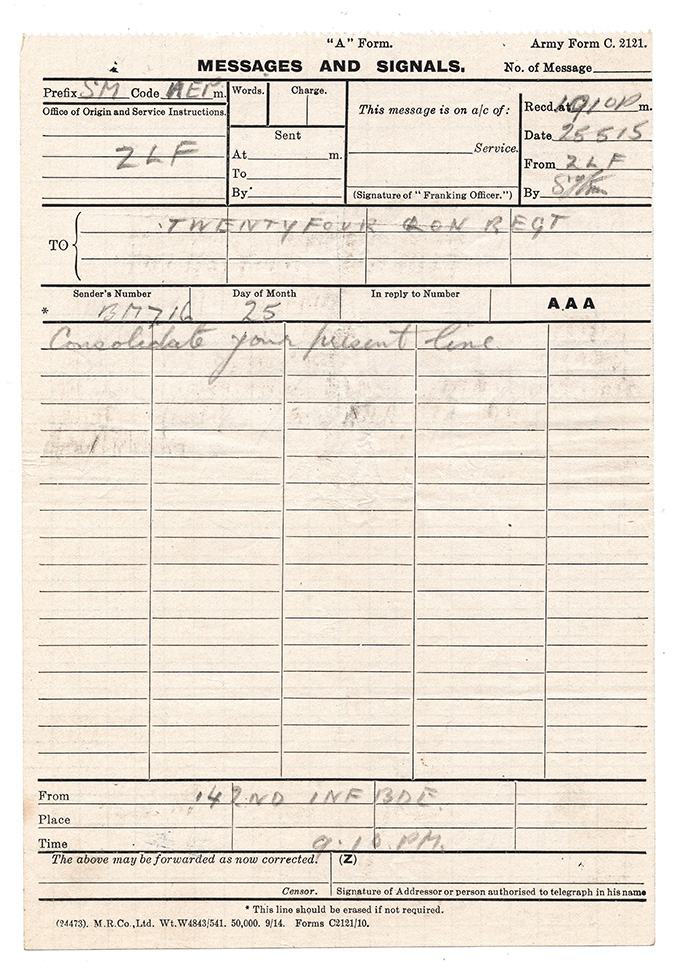 "A" Form. Army Form C. 2121.
MESSAGES AND SIGNALS. No. of Message
Prefix SM Code AEP m. Words. Charge. This message is on a/c of: Recd. at 910P m.
Office of Origin and Service Instructions. Sent Service. Date 25 5 15
ZLF At m. From ZLF
To
By (Signature of "Franking Officer.") By
TO TWENTYFOUR LON REGT
Sender's Number Day of Month In reply to Number AAA
* BM716 25
Consolidate your present line
From 142ND INF BDE
Place
Time 9.10 PM.
The above may be forwarded as now corrected. (Z)
Censor. Signature of Addressor or person authorised to telegraph in his name
* This line should be erased if not required.
(24473). M.R.Co.,Ltd. Wt.W4843/541. 50,000. 9/14. Forms C2121/10.